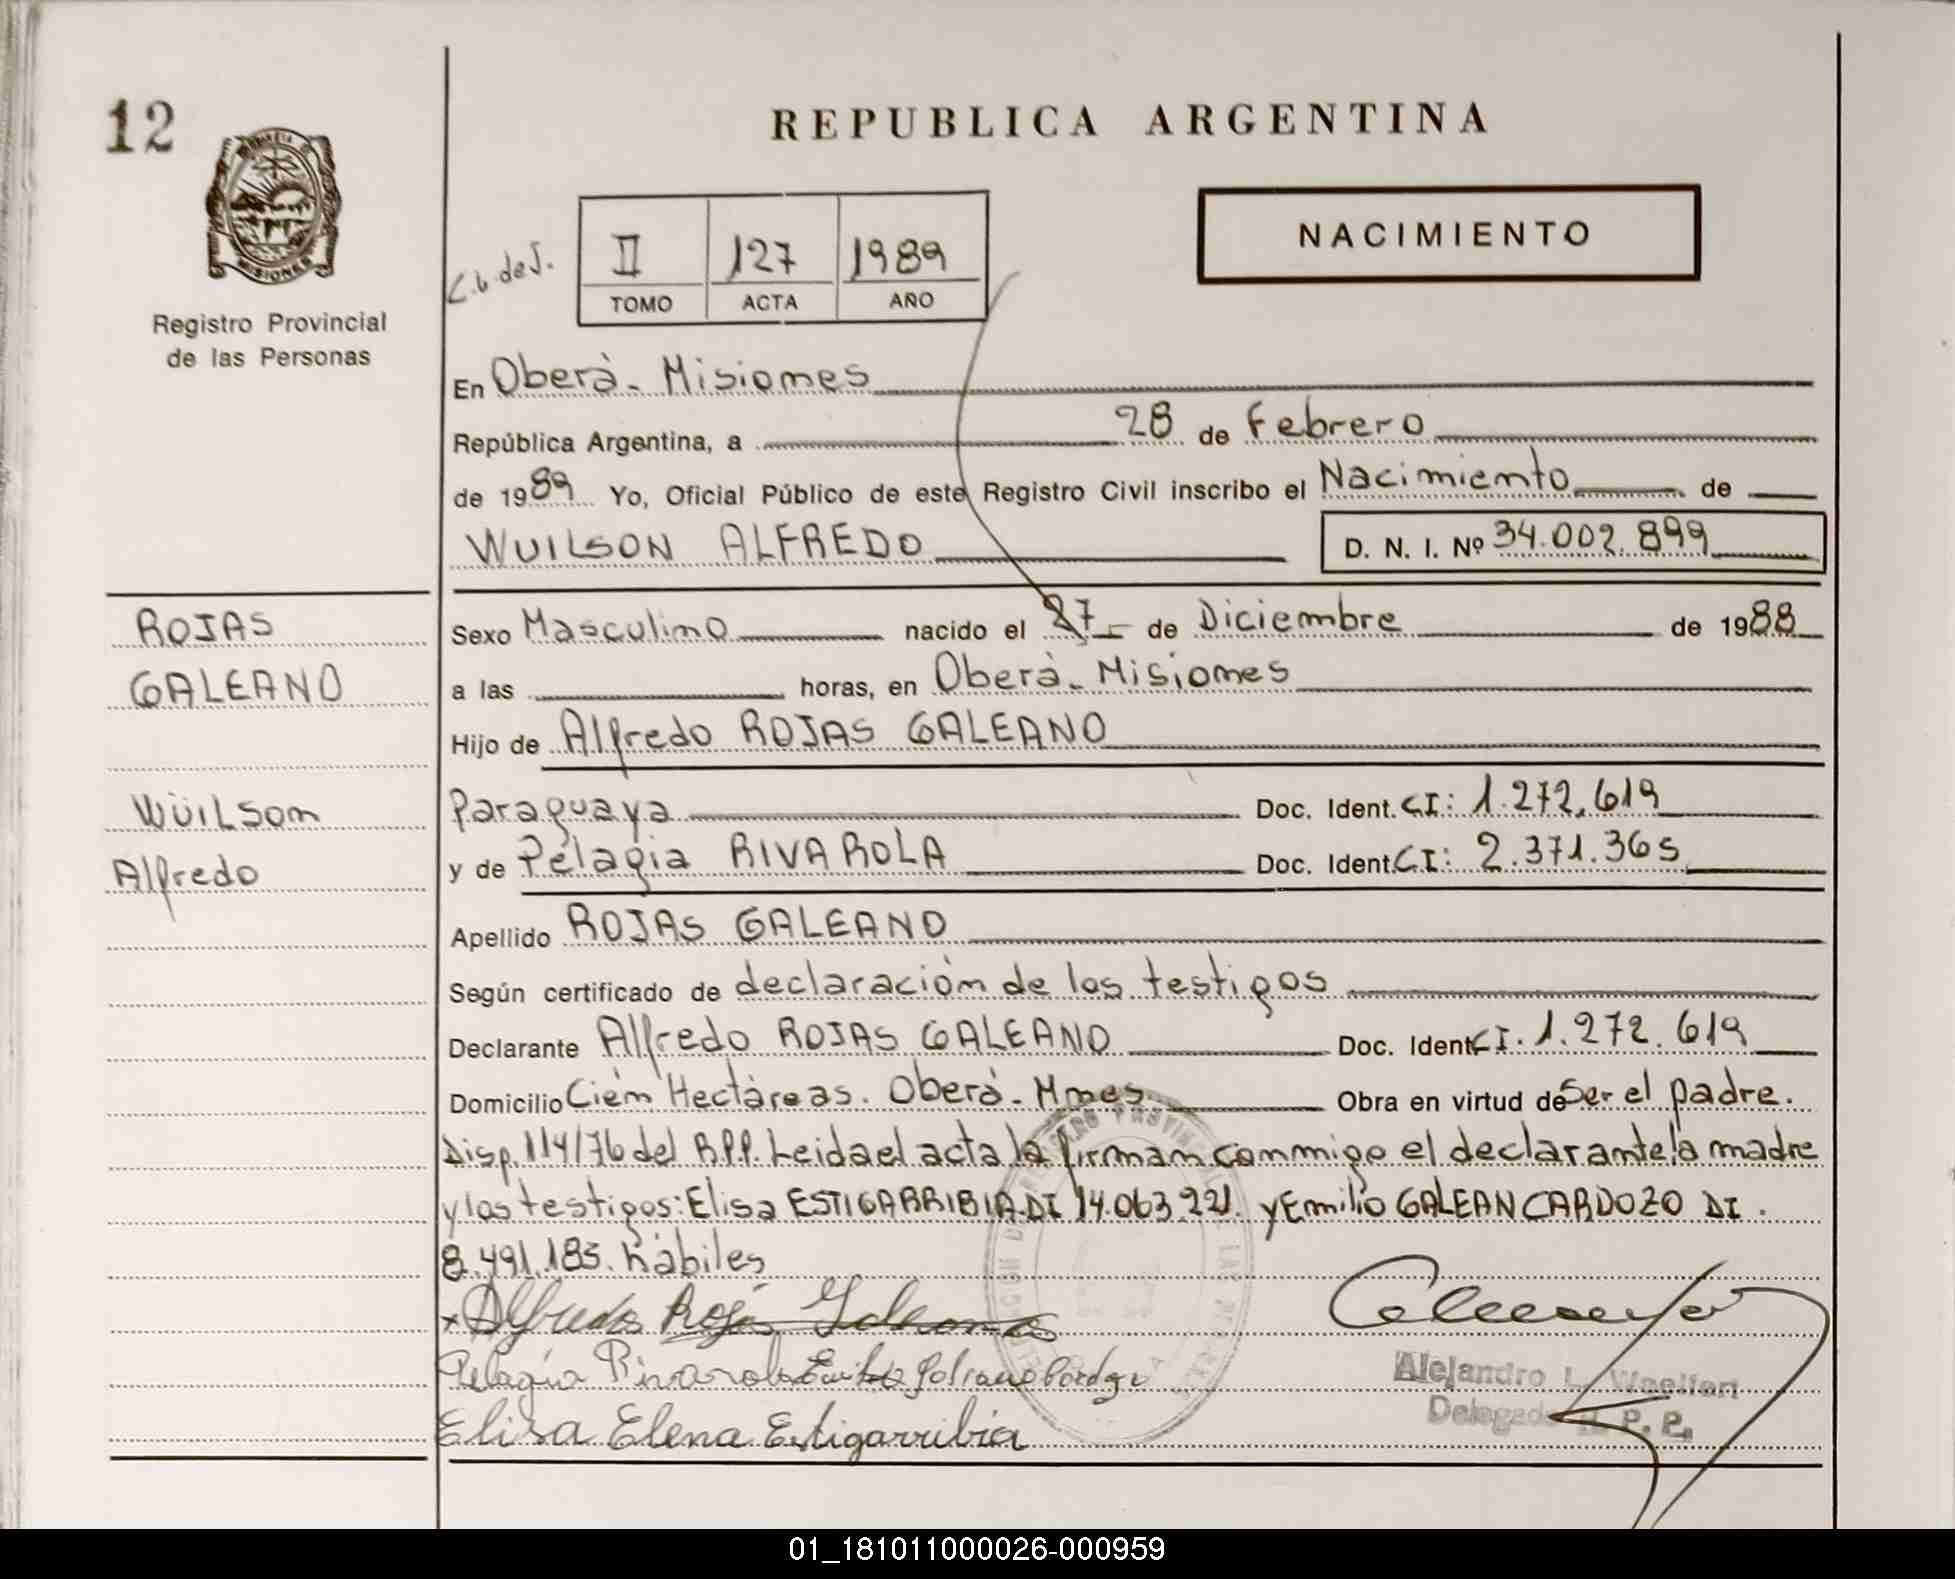 12
REPUBLICA ARGENTINA
MISIONES
Registro Provincial
de las Personas
C.b. de J.
II 127 1989
TOMO ACTA AÑO
NACIMIENTO
En Oberà - Misiones
República Argentina, a 28 de Febrero
de 1989 Yo, Oficial Público de este Registro Civil inscribo el Nacimiento de
WUILSON ALFREDO D. N. I. Nº 34.002.899
ROJAS
GALEANO
Wüilson
Alfredo
Sexo Masculino nacido el 27 de Diciembre de 1988
a las horas, en Oberà - Misiones
Hijo de Alfredo ROJAS GALEANO
Paraguaya Doc. Ident. CI: 1.272.619
y de Pelagia RIVAROLA Doc. Ident. CI: 2.371.365
Apellido ROJAS GALEANO
Según certificado de declaraciòn de los testigos
Declarante Alfredo ROJAS GALEANO Doc. Ident. CI. 1.272.619
Domicilio Cien Hectàreas. Oberà - Mnes Obra en virtud de Ser el padre.
Disp. 114/76 del R.P.P. Leida el acta la firman conmigo el declarante la madre
y los testigos: Elisa ESTIGARRIBIA DI 14.063.221. y Emilio GALEAN CARDOZO DI
8.491.183. hàbiles
x Alfredo Rojas Galeano
Pelagia Rivarola
Elisa Elena Estigarribia
Alejandro L.
Delegado R. P. P.
01_181011000026-000959